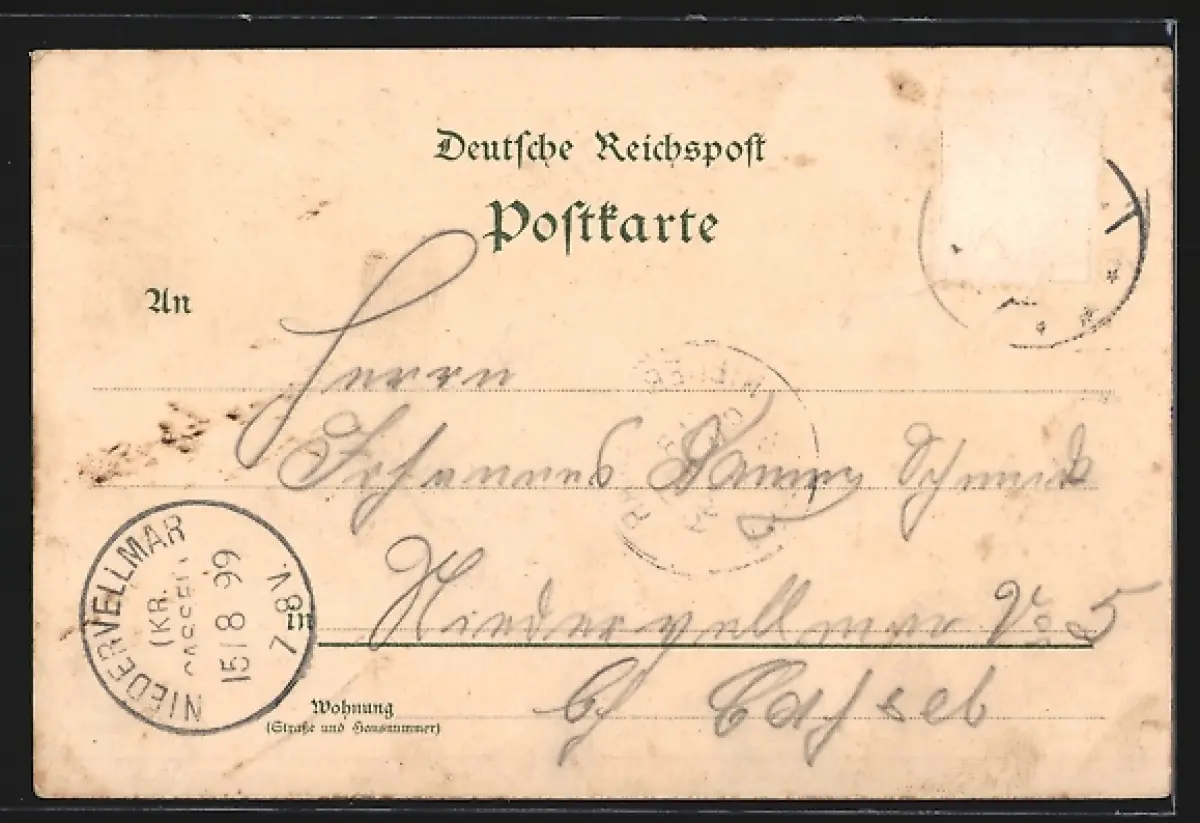 Deutsche Reichspost
Postkarte
An
Herrn
Johannes Schmidt
in Niedervellmar No 5
Wohnung
(Straße und Hausnummer)
b/ Cassel
NIEDERVELLMAR
(KR. CASSEL)
15/8 99
7-8V.